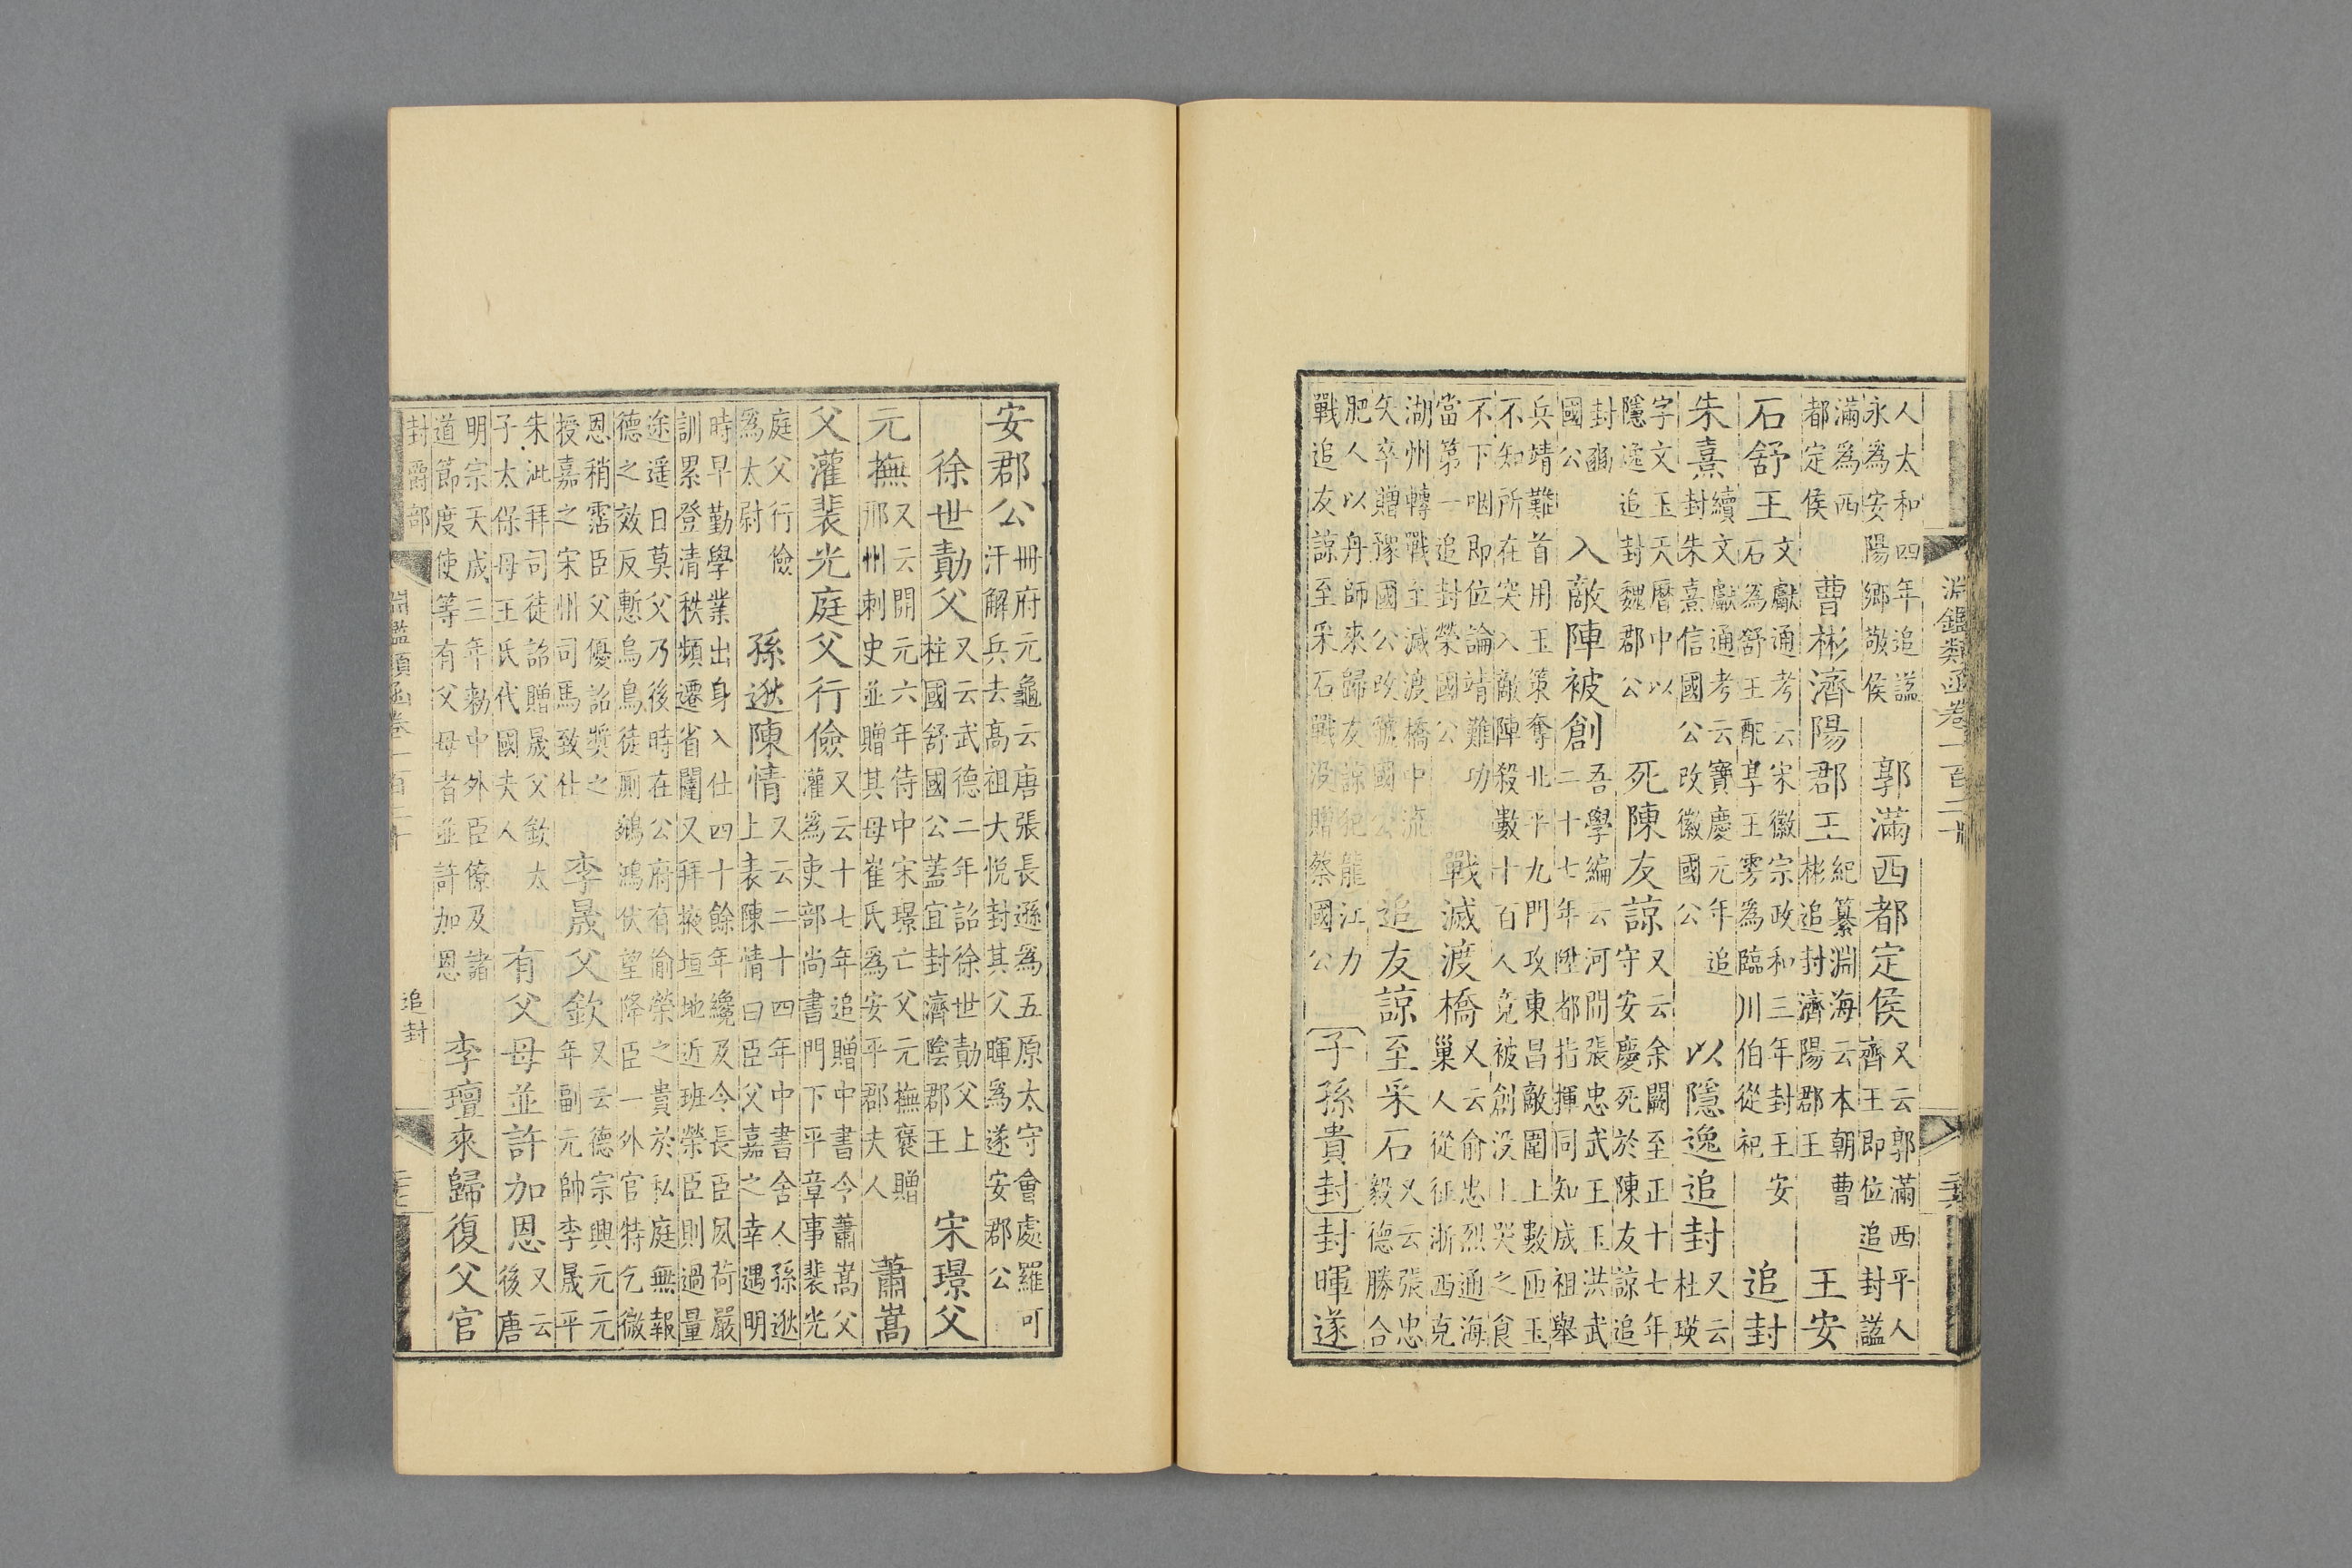 淵鑑類函卷一百二十
人太和四年追謚
永為安陽鄉敬侯
郭滿西都定侯
又云郭滿西平人
齊王即位追封謚
滿為西
都定侯
曹彬濟陽郡王
紀纂淵海云本朝曹
彬追封濟陽郡王
王安
石舒王
文獻通考云宋徽宗政和三年封王安
石為舒王配享王雱為臨川伯從祀
追封
朱熹
續文獻通考云寶慶元年追
封朱熹信國公改徽國公
以隱逸追封
又云
杜瑛
字文玉天曆中以
隱逸追封魏郡公
死陳友諒
又云余闕至正十七年
守安慶死於陳友諒追
封豳
國公
入敵陣被創
吾學編云河間張忠武王玉洪武
二十七年陞都指揮同知成祖舉
兵靖難首用玉策奪北平九門攻東昌敵圍上數匝玉
不知所在突入敵陣殺數十百人竟被創没上哭之食
不下咽即位論靖難功
當第一追封榮國公
戰滅渡橋
又云俞忠烈通海
巢人從征浙西克
湖州轉戰至滅渡橋中流
矢卒贈豫國公改虢國公
追友諒至采石
又云張忠
毅德勝合
肥人以舟師來歸友諒犯龍江力
戰追友諒至采石戰没贈蔡國公
子孫貴封
封暉遂
安郡公
冊府元龜云唐張長遜為五原太守會處羅可
汗解兵去高祖大悅封其父暉為遂安郡公
徐世勣父
又云武德二年詔徐世勣父上
柱國舒國公蓋宜封濟陰郡王
宋璟父
元撫
又云開元六年侍中宋璟亡父元撫褒贈
邢州刺史並贈其母崔氏為安平郡夫人
蕭嵩
父灌裴光庭父行儉
又云十七年追贈中書令蕭嵩父
灌為吏部尚書門下平章事裴光
庭父行儉
為太尉
孫逖陳情
又云二十四年中書舍人孫逖
上表陳情曰臣父嘉之幸遇明
時早勤學業出身入仕四十餘年纔及令長臣夙荷嚴
訓累登清秩頻遷省闥又拜掖垣地近班榮臣則過量
途遥日莫父乃後時在公府有偷榮之貴於私庭無報
德之效反慙烏鳥徒廁鵷鴻伏望降臣一外官特乞微
恩稍霑臣父優詔獎之
授嘉之宋州司馬致仕
李晟父欽
又云德宗興元元
年副元帥李晟平
朱泚拜司徒詔贈晟父欽太
子太保母王氏代國夫人
有父母並許加恩
又云
後唐
明宗天成三年勑中外臣僚及諸
道節度使等有父母者並許加恩
李壇來歸復父官
封爵部
淵鑑類函卷一百二十
追封